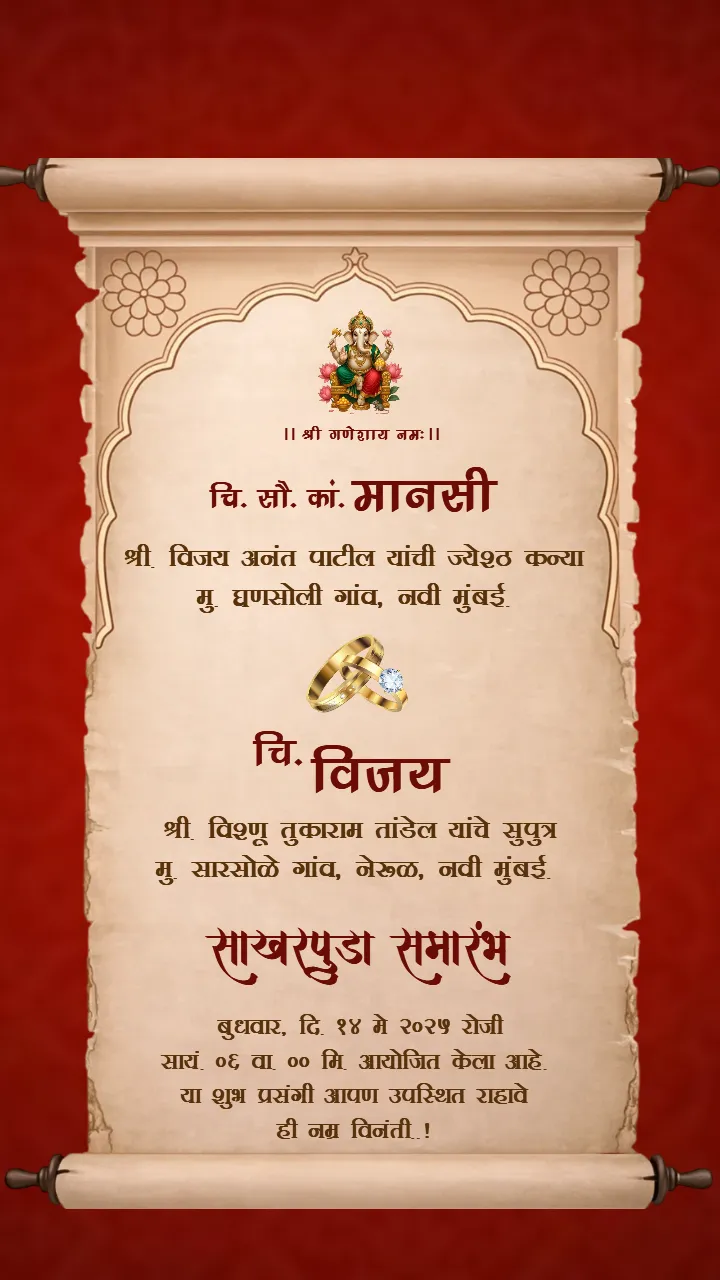 ।। श्री गणेशाय नमः ।।
चि. सौ. कां. मानसी
श्री. विजय अनंत पाटील यांची ज्येश्ठ कन्या
मु. घणसोली गांव, नवी मुंबई.
चि. विजय
श्री. विश्णू तुकाराम तांडेल यांचे सुपुत्र
मु. सारसोळे गांव, नेरूळ, नवी मुंबई.
साखरपुडा समारंभ
बुधवार, दि. १४ मे २०२५ रोजी
सायं. ०६ वा. ०० मि. आयोजित केला आहे.
या शुभ प्रसंगी आपण उपस्थित राहावे
ही नम्र विनंती..!